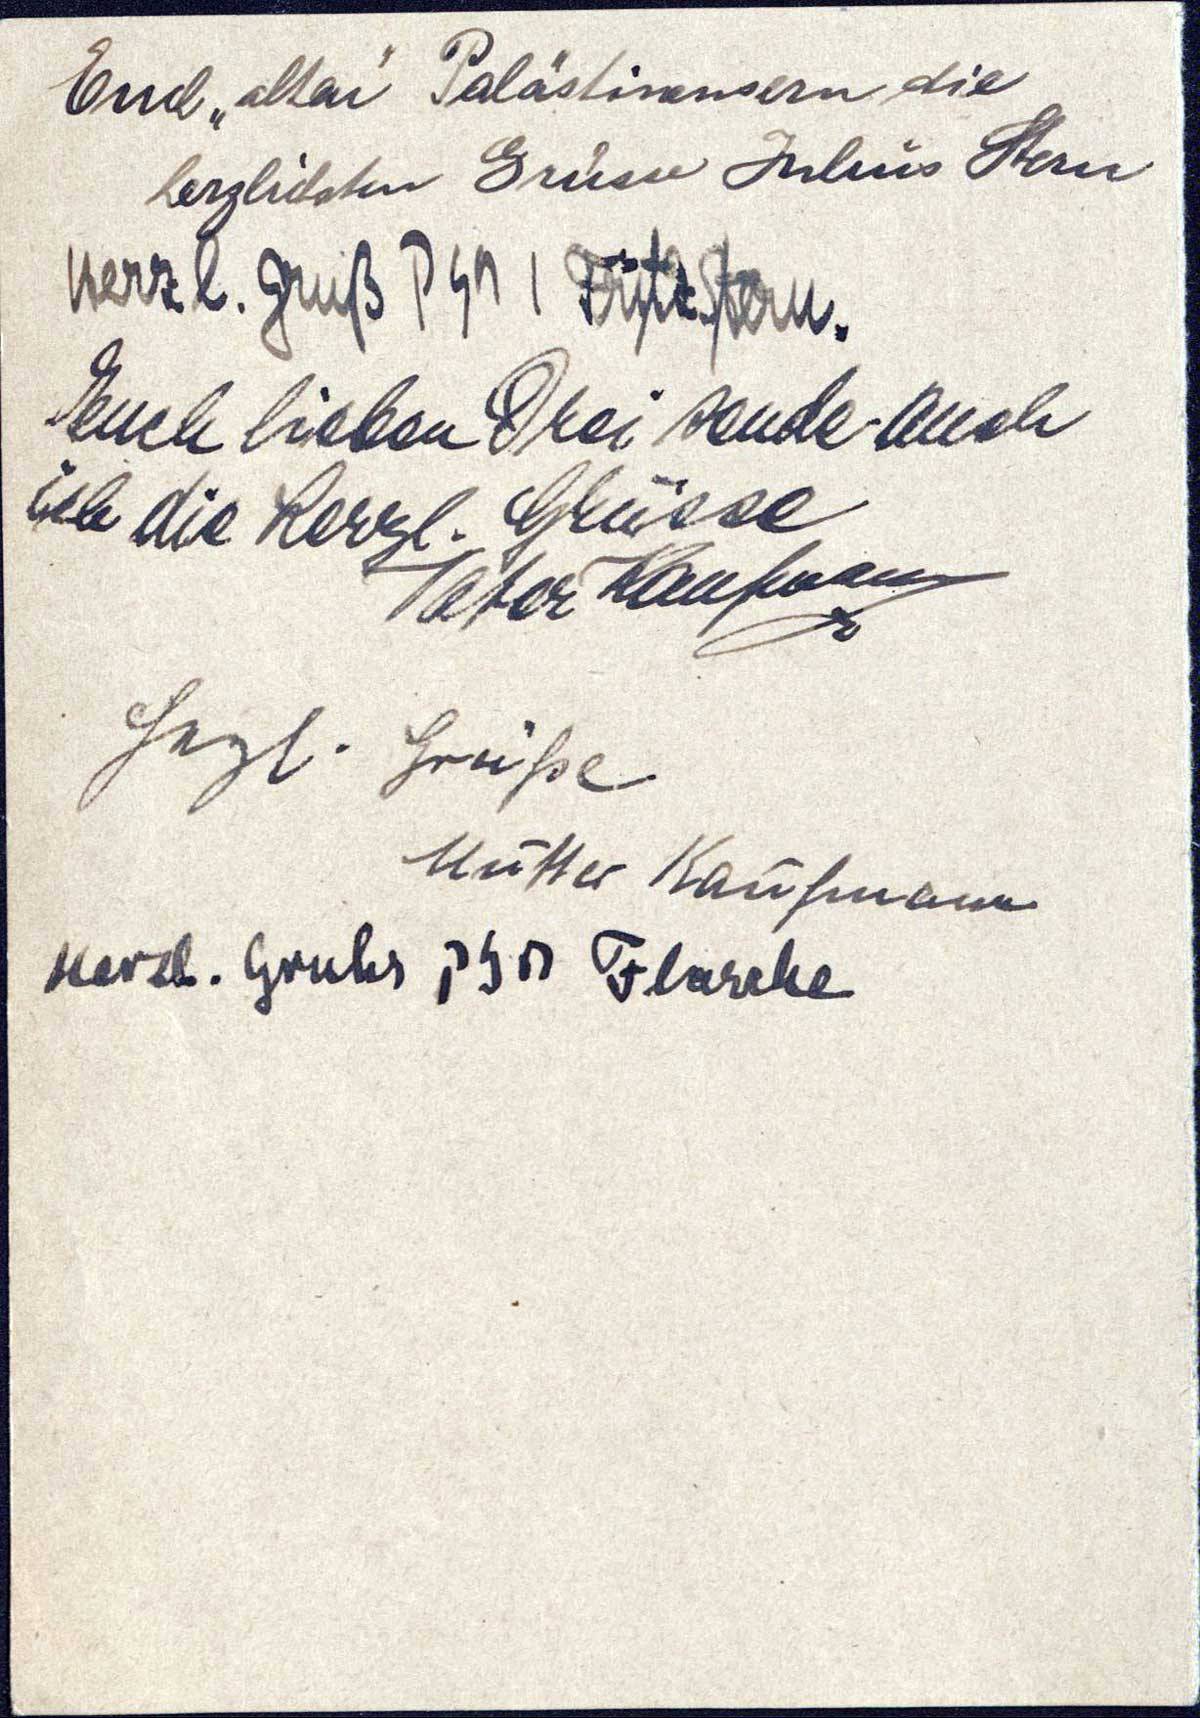 Euch „alten" Palästinensern die
herzlichsten Grüsse Julius Stern
Herzl. Gruß חזק! Fritz Stern.
Euch lieben Drei sende auch
ich die herzl. Grüsse
Vater Kaufmann
Herzl. Grüße
Mutter Kaufmann
Herzl. Gruhs חזק Flasche